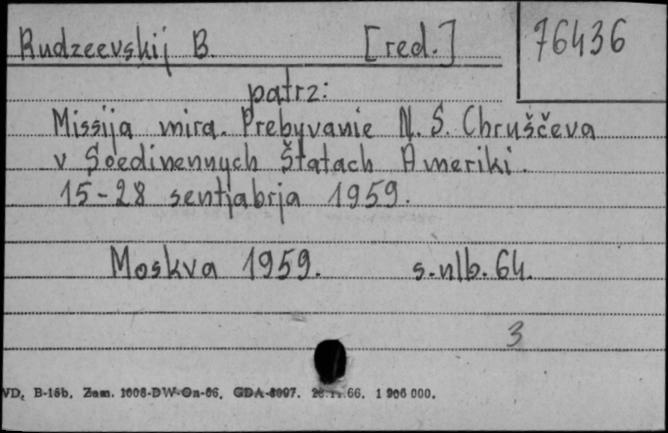 Rudzeevskij B. [red.] 76436
patrz:
Missija mira. Prebyvanie N. S. Chruščeva
v Soedinennych Štatach Ameriki.
15-28 sentjabrja 1959.
Moskva 1959. s.nlb. 64.
3
VD, B-16b, Zam. GDA- 66. 1 906 000.